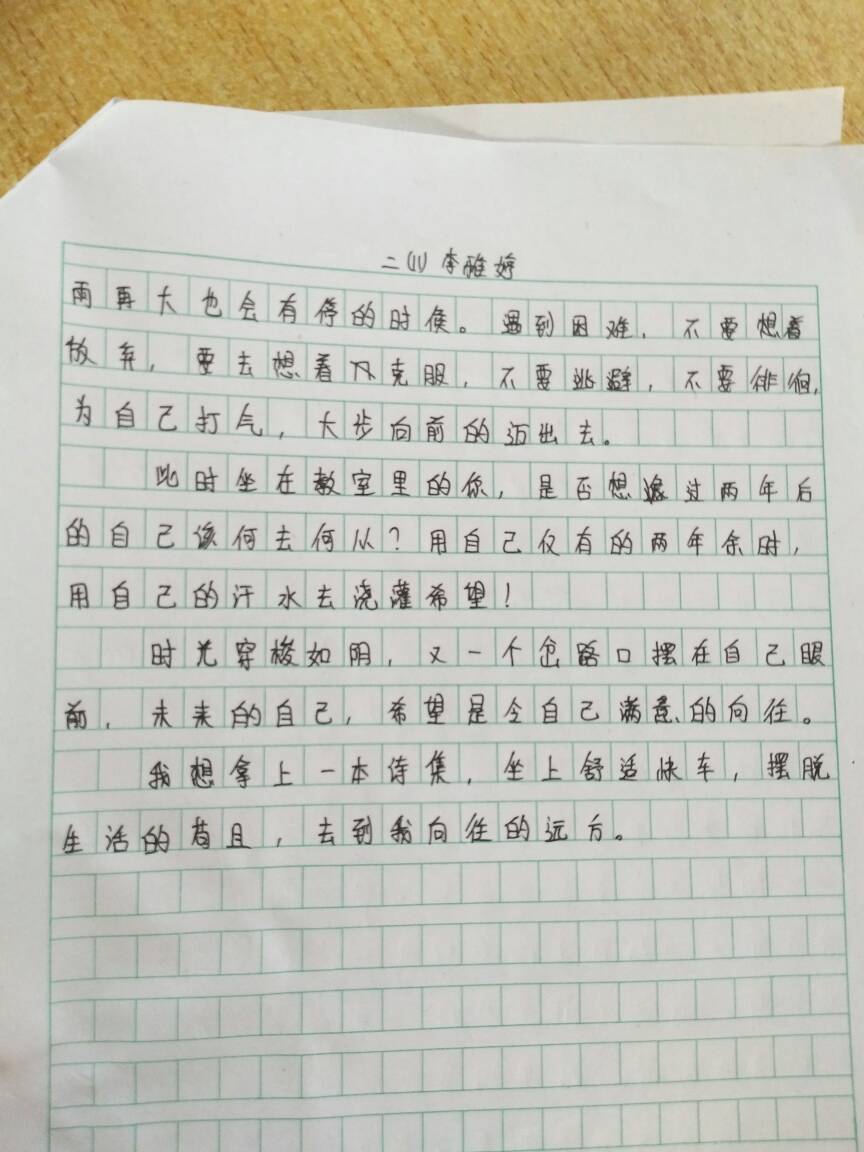 二(1) 李雅婷
雨再大也会有停的时候。遇到困难，不要想着
放弃，要去想着及克服，不要逃避，不要徘徊，
为自己打气，大步向前的迈出去。
此时坐在教室里的你，是否想过两年后
的自己该何去何从？用自己仅有的两年余时，
用自己的汗水去浇灌希望！
时光穿梭如阴，又一个岔路口摆在自己眼
前，未来的自己，希望是令自己满意的向往。
我想拿上一本诗集，坐上舒适快车，摆脱
生活的苟且，去到我向往的远方。